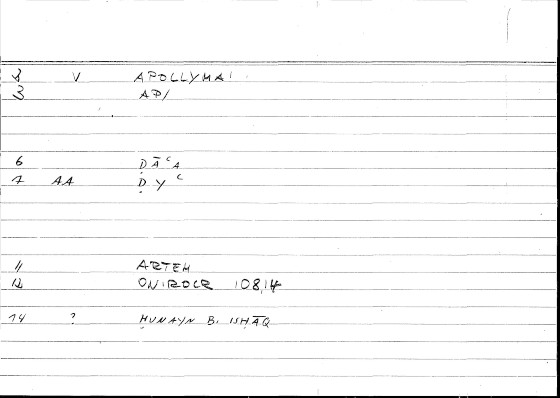 8 V APOLLYMAI
3 API
6 ḌĀᶜA
7 AA ḌYᶜ
11 ARTEM
12 ONIROCR 108,14
14 ? ḤUNAYN B. ISḤĀQ